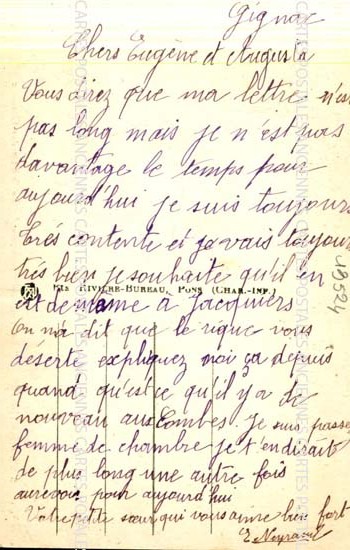 Gignac
Chers Eugène et Augusta
Vous direz que ma lettre n'est
pas long mais je n'est pas
davantage le temps pour
aujourd'hui je suis toujours
très contente et javais toujours
très bien je souhaite qu'il en
Éts RIVIÈRE-BUREAU, PONS (CHAR.-INF.)
est de même à Jacquiers
On ma dit que le vous
déserte expliquez moi ça depuis
quand qu'est ce qu'il y a de
nouveau aux Combes je suis passée
femme de chambre je t'en dirait
de plus long une autre fois
aurevoir pour aujourd'hui
Votre petite sœur qui vous aime bien fort
E Neyraud
19524